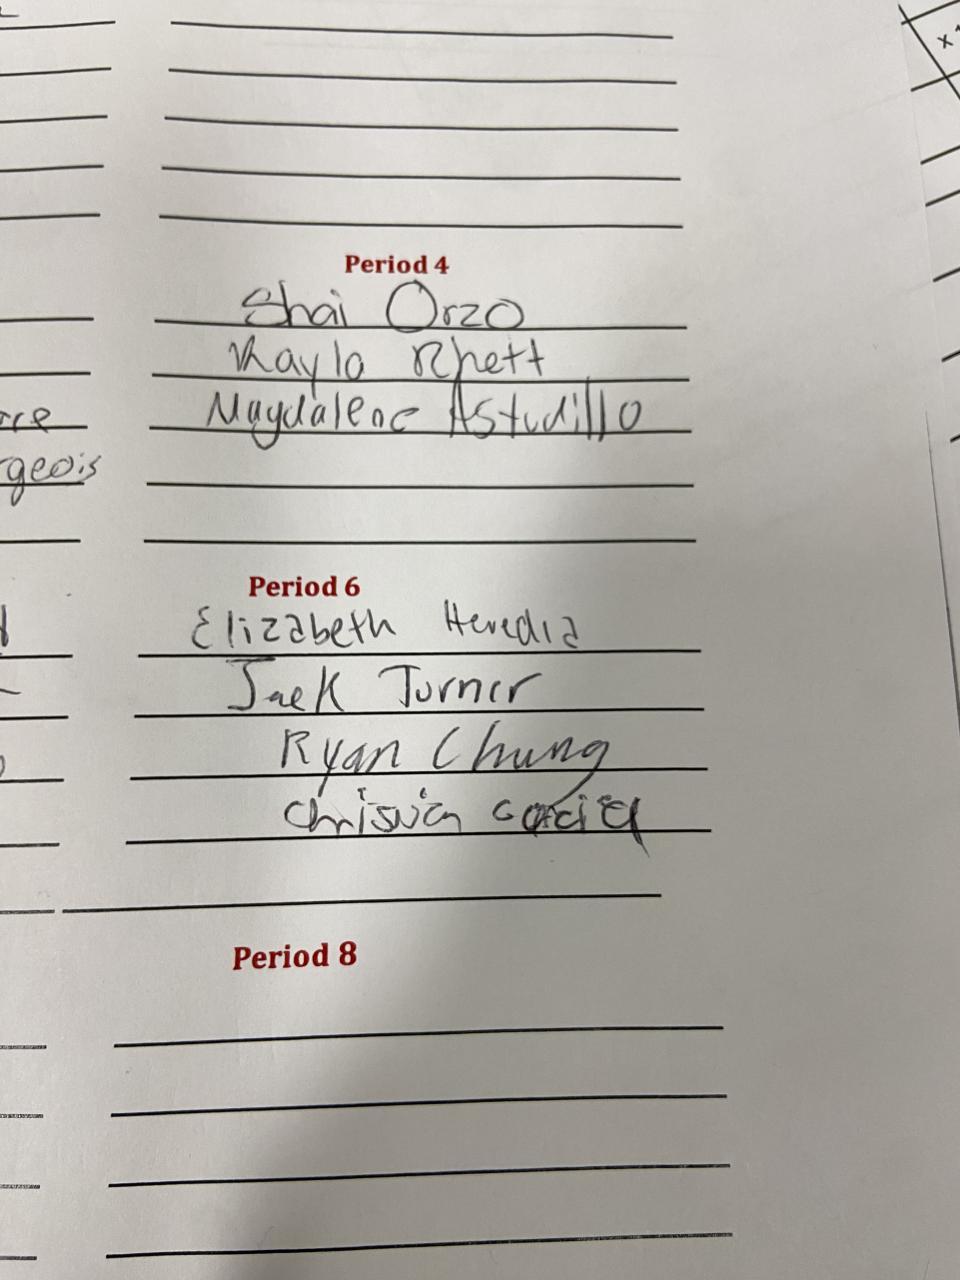 Period 4
Shai Orzo
Kayla Rhett
Magdalene Astudillo
geois
Period 6
Elizabeth Heredia
Jack Turner
Ryan Chung
Period 8